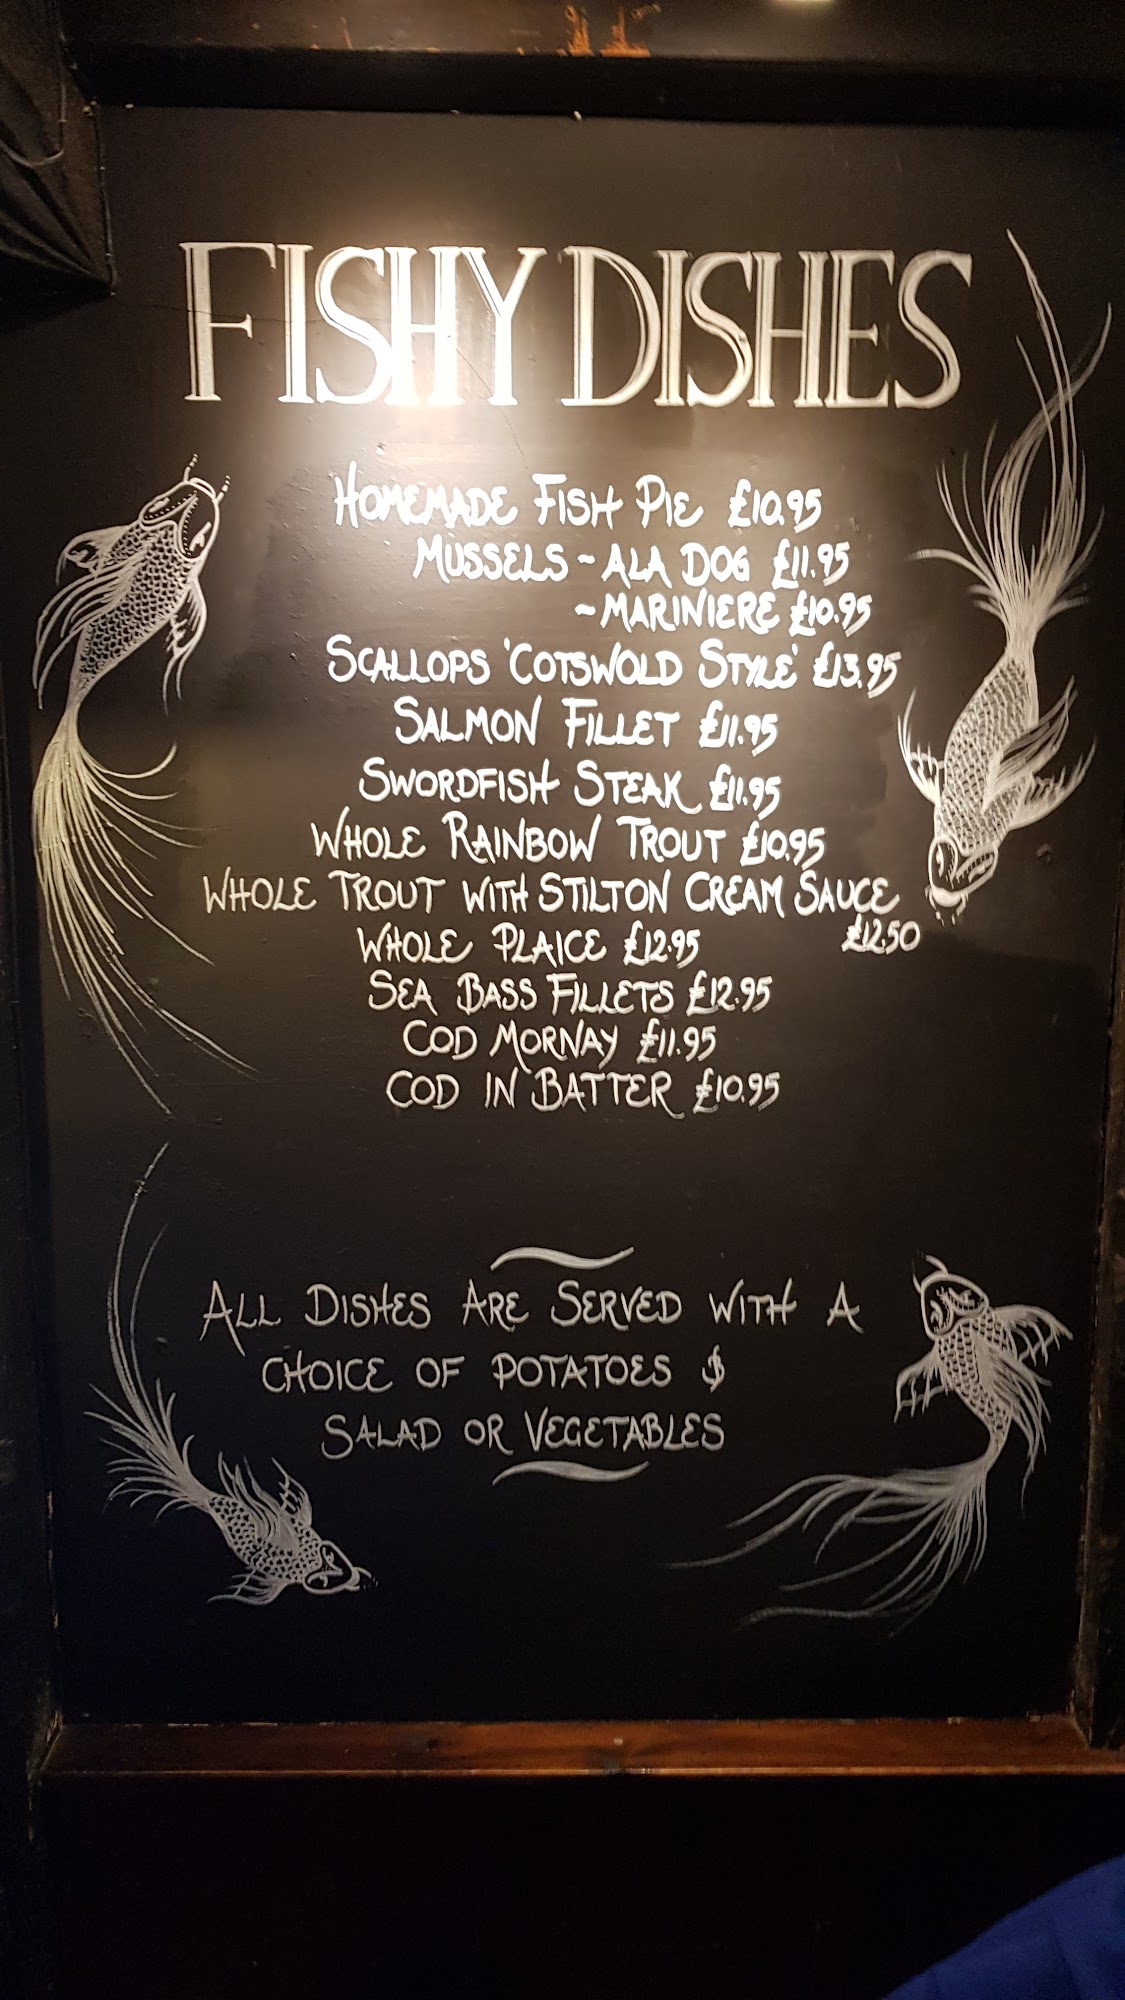 FISHY DISHES
HOMEMADE FISH PIE £10.95
MUSSELS ~ ALA DOG £11.95
~ MARINIERE £10.95
SCALLOPS 'COTSWOLD STYLE' £13.95
SALMON FILLET £11.95
SWORDFISH STEAK £11.95
WHOLE RAINBOW TROUT £10.95
WHOLE TROUT WITH STILTON CREAM SAUCE
£12.50
WHOLE PLAICE £12.95
SEA BASS FILLETS £12.95
COD MORNAY £11.95
COD IN BATTER £10.95
ALL DISHES ARE SERVED WITH A
CHOICE OF POTATOES &
SALAD OR VEGETABLES